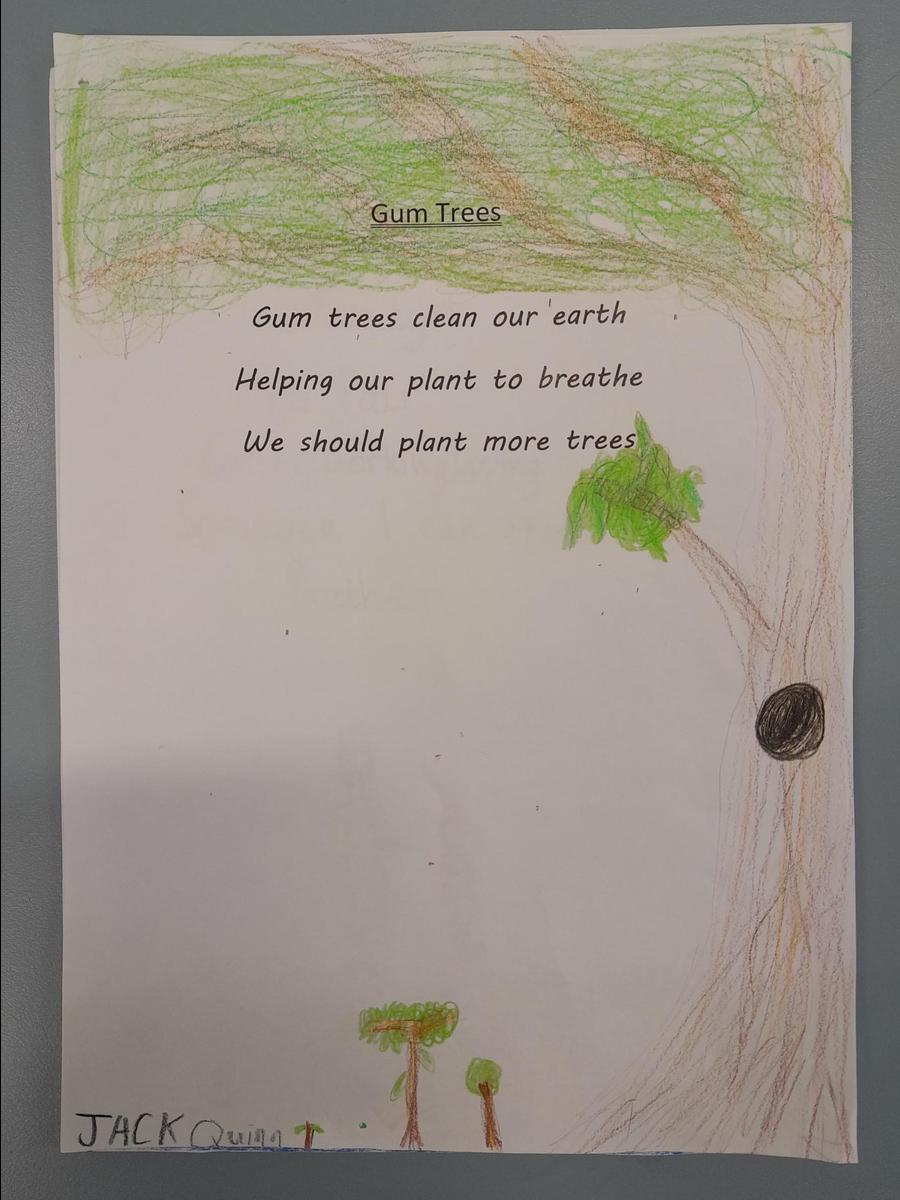 Gum Trees
Gum trees clean our earth
Helping our plant to breathe
We should plant more trees
JACK Quinn